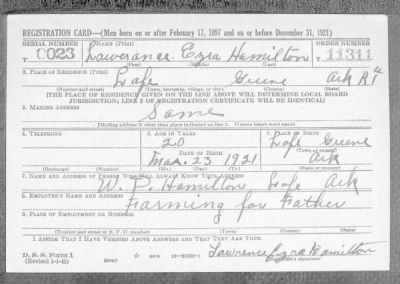 REGISTRATION CARD—(Men born on or after February 17, 1897 and on or before December 31, 1921)
SERIAL NUMBER 1. NAME (Print) ORDER NUMBER
T 0023 Lawerance Ezra Hamilton T 11311
2. PLACE OF RESIDENCE (Print)
Lafe Greene Ark R4
(Number and street) (Town, township, village, or city) (County) (State)
[THE PLACE OF RESIDENCE GIVEN ON THE LINE ABOVE WILL DETERMINE LOCAL BOARD
JURISDICTION; LINE 2 OF REGISTRATION CERTIFICATE WILL BE IDENTICAL]
3. MAILING ADDRESS
Same
[Mailing address if other than place indicated on line 2. If same insert word same]
4. TELEPHONE 5. AGE IN YEARS 6. PLACE OF BIRTH
20 Lafe Greene
DATE OF BIRTH (Town or county)
Mar. 23 1921 Ark
(Exchange) (Number) (Mo.) (Day) (Yr.) (State or country)
7. NAME AND ADDRESS OF PERSON WHO WILL ALWAYS KNOW YOUR ADDRESS
W. P. Hamilton Lafe Ark
8. EMPLOYER'S NAME AND ADDRESS
Farming for Father
9. PLACE OF EMPLOYMENT OR BUSINESS
(Number and street or R. F. D. number) (Town) (County) (State)
I AFFIRM THAT I HAVE VERIFIED ABOVE ANSWERS AND THAT THEY ARE TRUE.
D. S. S. Form 1 Lawrence Ezra Hamilton
(Revised 1-1-42) (over) (Registrant's signature)